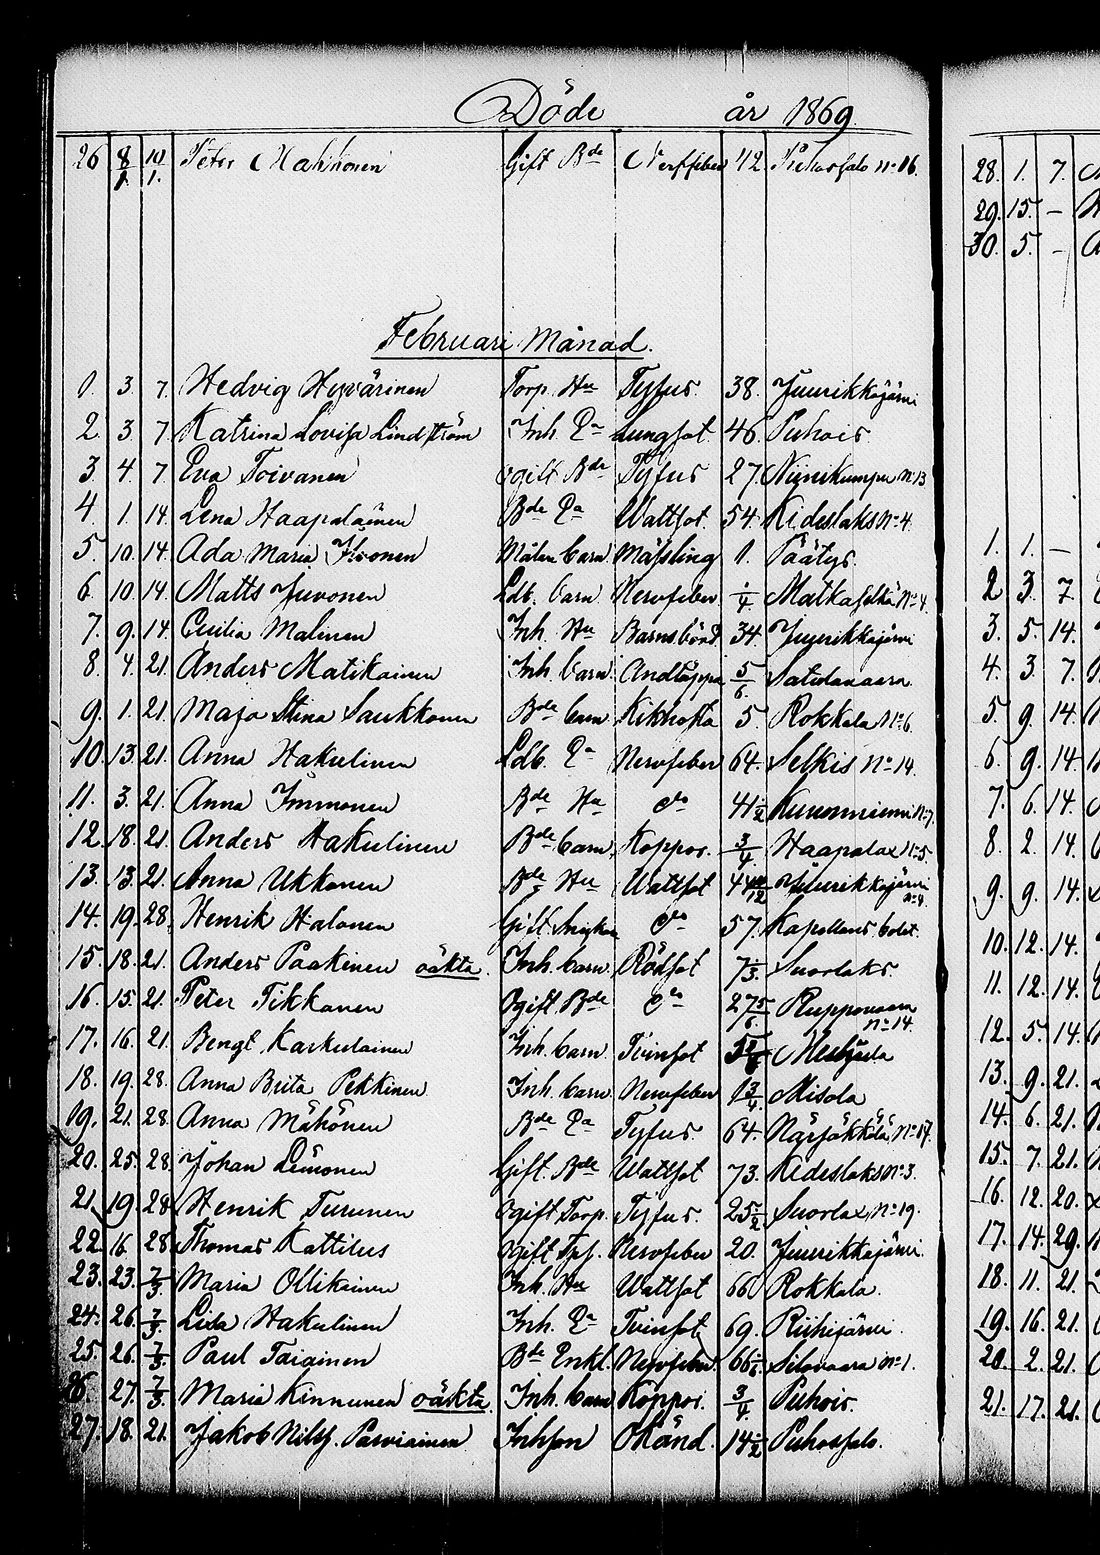 Döde år 1869
26 8/1 10/1. Peter Makkonen Gift Bde Nerffeber 42. Puhossalo no 16.
Februari Månad.
1. 3. 7. Hedvig Hyvärinen Torp. Hu Tyfus. 38. Juurikkajärvi
2. 3. 7. Katrina Lovisa Lindström Inh. Ea Lungsot. 46. Puhois
3. 4. 7 Eva Toivanen ogift Bde Tyfus 27. No 13
4. 1. 14. Lena Haapalainen Bde Ea Wattsot. 54. Kideslaks No 4.
5. 10. 14. Ada Maria Ikonen Målare barn Mässling 1. Päätys.
6. 10. 14. Matts Juvonen Ldb. barn Nervfeber 1/4 Matkaselkä No 4.
7. 9. 14. Cecilia Malinen Inh. Hu Barnsbörd. 34. Juurikkajärvi
8. 4. 21. Anders Matikainen Inh. barn. Andtäppa 5/6. Satulavaara.
9. 1. 21. Maja Stina Saukkonen Bde barn Kikhosta 5. Rokkala No 6.
10. 13. 21. Anna Hakulinen Ldb. Ea Nervfeber 64. Selkis No 14.
11. 3. 21. Anna Immonen Bde Hu do 41 1/2 Kunonniemi No 7.
12. 18. 21. Anders Hakulinen Bde barn Koppor. 3/4. Haapalax No 5.
13. 13. 21. Anna Ukkonen Bde Hu Wattsot Juurikkajärvi
no 4.
14. 19. 28. Henrik Halonen Gift do 57. Kapellans bolet.
15. 18. 21. Anders Paakinen oäkta. Inh. barn Rödsot 7 1/3. Suorlaks.
16. 15. 21. Peter Tikkanen Ogift Bde do 27 5/6. Ruppovaara
no 14.
17. 16. 21. Bengt Karkulainen Inh. barn Tvinsot
18. 19. 28. Anna Brita Pekkinen Inh. barn Nervfeber 1 3/4. Misola
19. 21. 28. Anna Mähönen Bde Ea Tyfus. 64. Närsäkkälä No 17.
20. 25. 28. Johan Limonen Gift. Bde Wattsot 73. Kideslaks No 3.
21. 19. 28 Henrik Turunen Ogift Torp. Tyfus. 25 1/2 Suorlax, No 19.
22. 16. 28. Thomas Kattilus Ogift Nervfeber 20. Juurikkajärvi.
23. 23. 7/3. Maria Ollikainen Inh. Hu Wattsot 66 Rokkala.
24. 26. 7/3. Lisa Hakulinen Inh. Ea Tvinsot 69. Riihijärvi.
25. 26. 7/3. Paul Taiginen Bde Enkl. Nervfeber. Silovaara no 1.
26. 27. 7/3. Maria Kinnunen oäkta. Inh. barn Koppor. 3/4. Puhois.
27. 18. 21. Jakob Nilss. Parviainen Inhson Okänd. 14 1/2 Puhossalo.
28. 1. 7.
29. 15. –
30. 5. –
1. 1. –
2 3. 7
3. 5. 14.
4. 3. 7.
5. 9. 14.
6. 9. 14.
7. 6. 14.
8. 2. 14.
9. 9. 14.
10. 12. 14.
11. 12. 14.
12. 5. 14.
13. 9. 21.
14. 6. 21.
15. 7. 21.
16. 12. 20.
17. 14. 29.
18. 11. 21.
19. 16. 21.
20. 2. 21.
21. 17. 21.